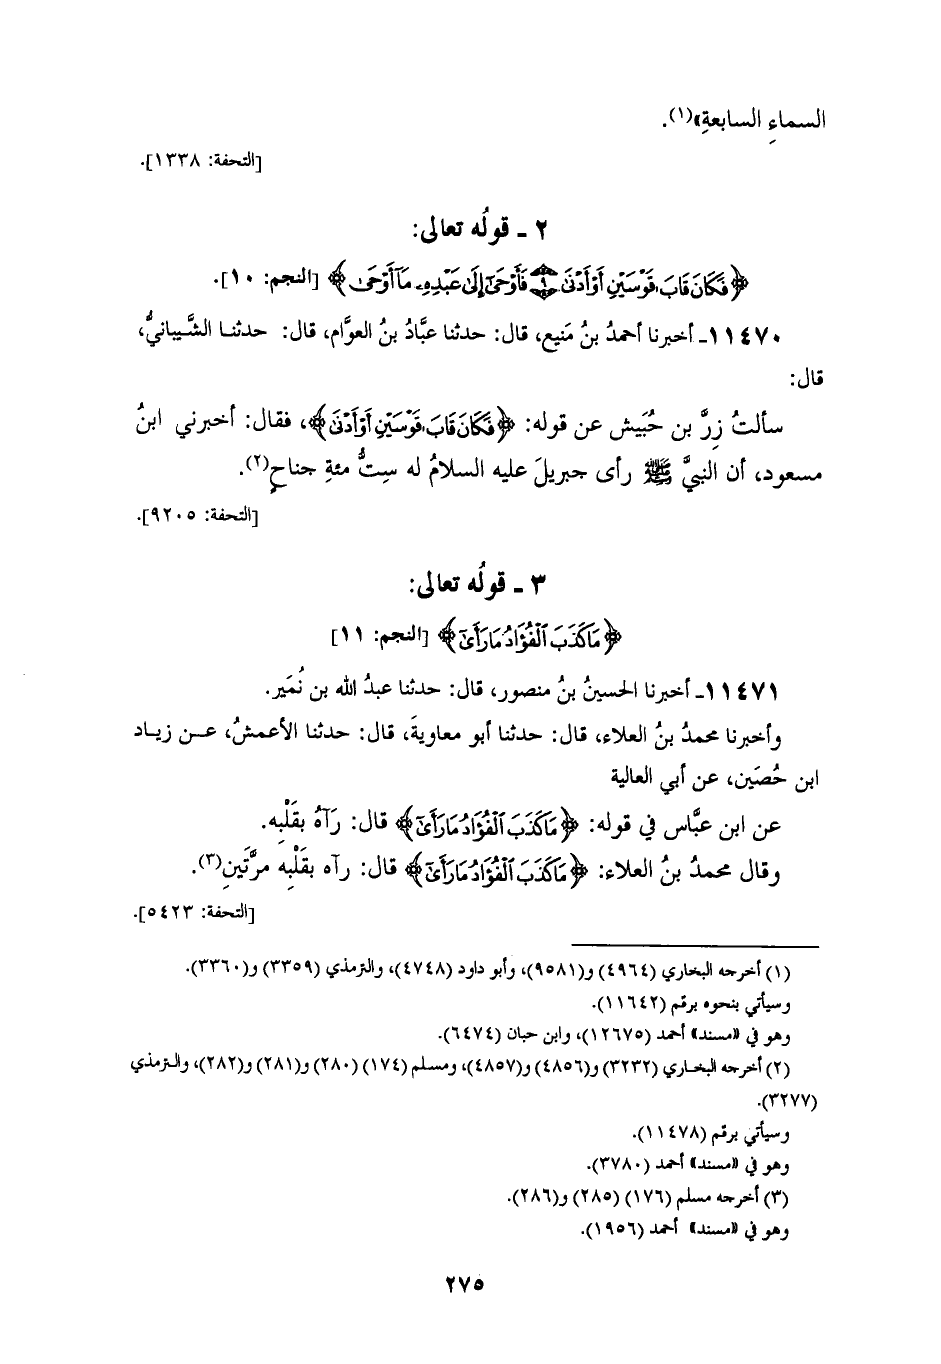 السماءِ السابعةِ»(١).
[التحفة: ١٣٣٨].
٢ ـ قولُه تعالى:
﴿فَكَانَ قَابَ قَوْسَيْنِ أَوْ أَدْنَىٰ ۝٩ فَأَوْحَىٰٓ إِلَىٰ عَبْدِهِۦ مَآ أَوْحَىٰ﴾ [النجم: ١٠].
١١٤٧٠ـ أخبرنا أحمدُ بنُ مَنيع، قال: حدثنا عبَّادُ بنُ العوَّام، قال: حدثنا الشَّيبانيُّ،
قال:
سألتُ زِرَّ بن حُبَيش عن قوله: ﴿فَكَانَ قَابَ قَوْسَيْنِ أَوْ أَدْنَىٰ﴾، فقال: أخبرني ابنُ
مسعود، أن النبيَّ ﷺ رأى جبريلَ عليه السلامُ له سِتُّ مئةِ جناحٍ(٢).
[التحفة: ٩٢٠٥].
٣ ـ قولُه تعالى:
﴿مَا كَذَبَ ٱلْفُؤَادُ مَا رَأَىٰٓ﴾ [النجم: ١١]
١١٤٧١ـ أخبرنا الحسينُ بنُ منصور، قال: حدثنا عبدُ الله بن نُمَير.
وأخبرنا محمدُ بنُ العلاء، قال: حدثنا أبو معاويةَ، قال: حدثنا الأعمشُ، عن زياد
ابن حُصَين، عن أبي العالية
عن ابن عبَّاس في قوله: ﴿مَا كَذَبَ ٱلْفُؤَادُ مَا رَأَىٰٓ﴾ قال: رَآهُ بقَلْبِه.
وقال محمدُ بنُ العلاء: ﴿مَا كَذَبَ ٱلْفُؤَادُ مَا رَأَىٰٓ﴾ قال: رآه بقَلْبِه مرَّتَين(٣).
[التحفة: ٥٤٢٣].
(١) أخرجه البخاري (٤٩٦٤) و(٩٥٨١)، وأبو داود (٤٧٤٨)، والترمذي (٣٣٥٩) و(٣٣٦٠).
وسيأتي بنحوه برقم (١١٦٤٢).
وهو في «مسند» أحمد (١٢٦٧٥)، وابن حبان (٦٤٧٤).
(٢) أخرجه البخاري (٣٢٣٢) و(٤٨٥٦) و(٤٨٥٧)، ومسلم (١٧٤) (٢٨٠) و(٢٨١) و(٢٨٢)، والترمذي
(٣٢٧٧).
وسيأتي برقم (١١٤٧٨).
وهو في «مسند» أحمد (٣٧٨٠).
(٣) أخرجه مسلم (١٧٦) (٢٨٥) و(٢٨٦).
وهو في «مسند» أحمد (١٩٥٦).
٢٧٥